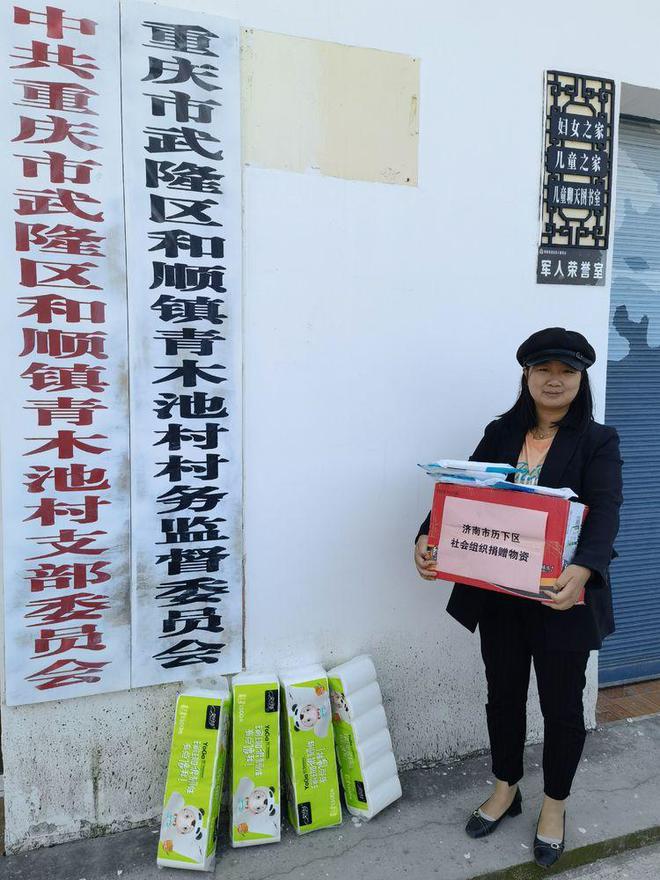 中共重庆市武隆区和顺镇青木池村支部委员会
重庆市武隆区和顺镇青木池村村务监督委员会
妇女之家
儿童之家
儿童聊天图书室
军人荣誉室
济南市历下区
社会组织捐赠物资
YoGo